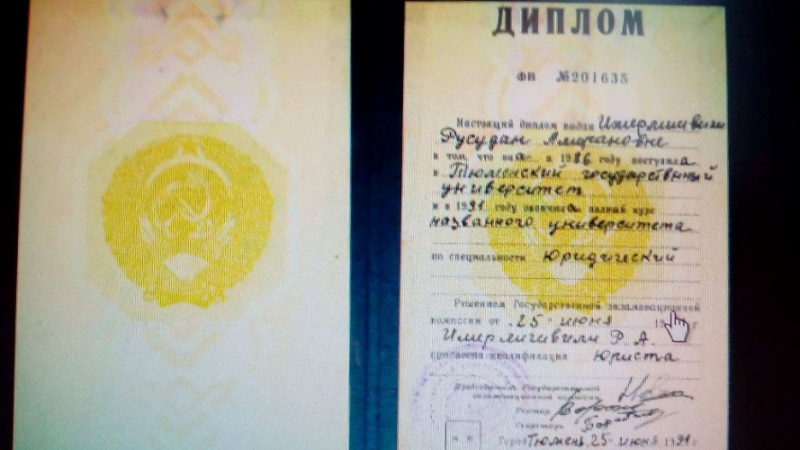 ДИПЛОМ
ФВ №201635
Настоящий диплом выдан Имерлишвили
Русудан Амирановне
в том, что она в 1986 году поступила
в Тюменский государственный
университет
и в 1991 году окончила полный курс
названного университета
по специальности юридический
Решением Государственной экзаменационной
комиссии от 25 июня 19 г.
Имерлишвили Р. А.
присвоена квалификация юриста
Председатель Государственной
экзаменационной комиссии
Ректор
Секретарь
Город Тюмень, 25 июня 1991 г.